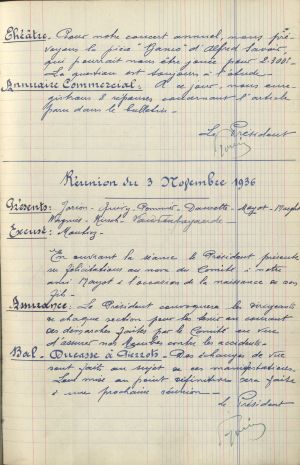 Théâtre. Pour notre concert annuel, nous pré-
voyons la pièce "Banco" d'Alfred Savoir,
qui pourrait nous être jouée pour 2.300f.
La question est toujours à l'étude.
Annuaire Commercial: A ce jour, nous enre-
gistrons 8 réponses concernant l'article
paru dans le bulletin.
Le Président
Réunion du 3 Novembre 1936
Présents: Mayot
Excusé:
En ouvrant la séance le Président présente
ses félicitations au nom du Comité à notre
ami Mayot à l'occasion de la naissance de son
fils.
Assurance. Le Président convoquera les dirigeants
de chaque section pour les tenir au courant
des démarches faites par le Comité en vue
d'assurer nos Membres contre les accidents.
Bal - Ducasse à Pierrots - Des échanges de vue
sont faits au sujet de ces manifestations.
Leur mise au point définitive sera faite
à une prochaine réunion.
Le Président